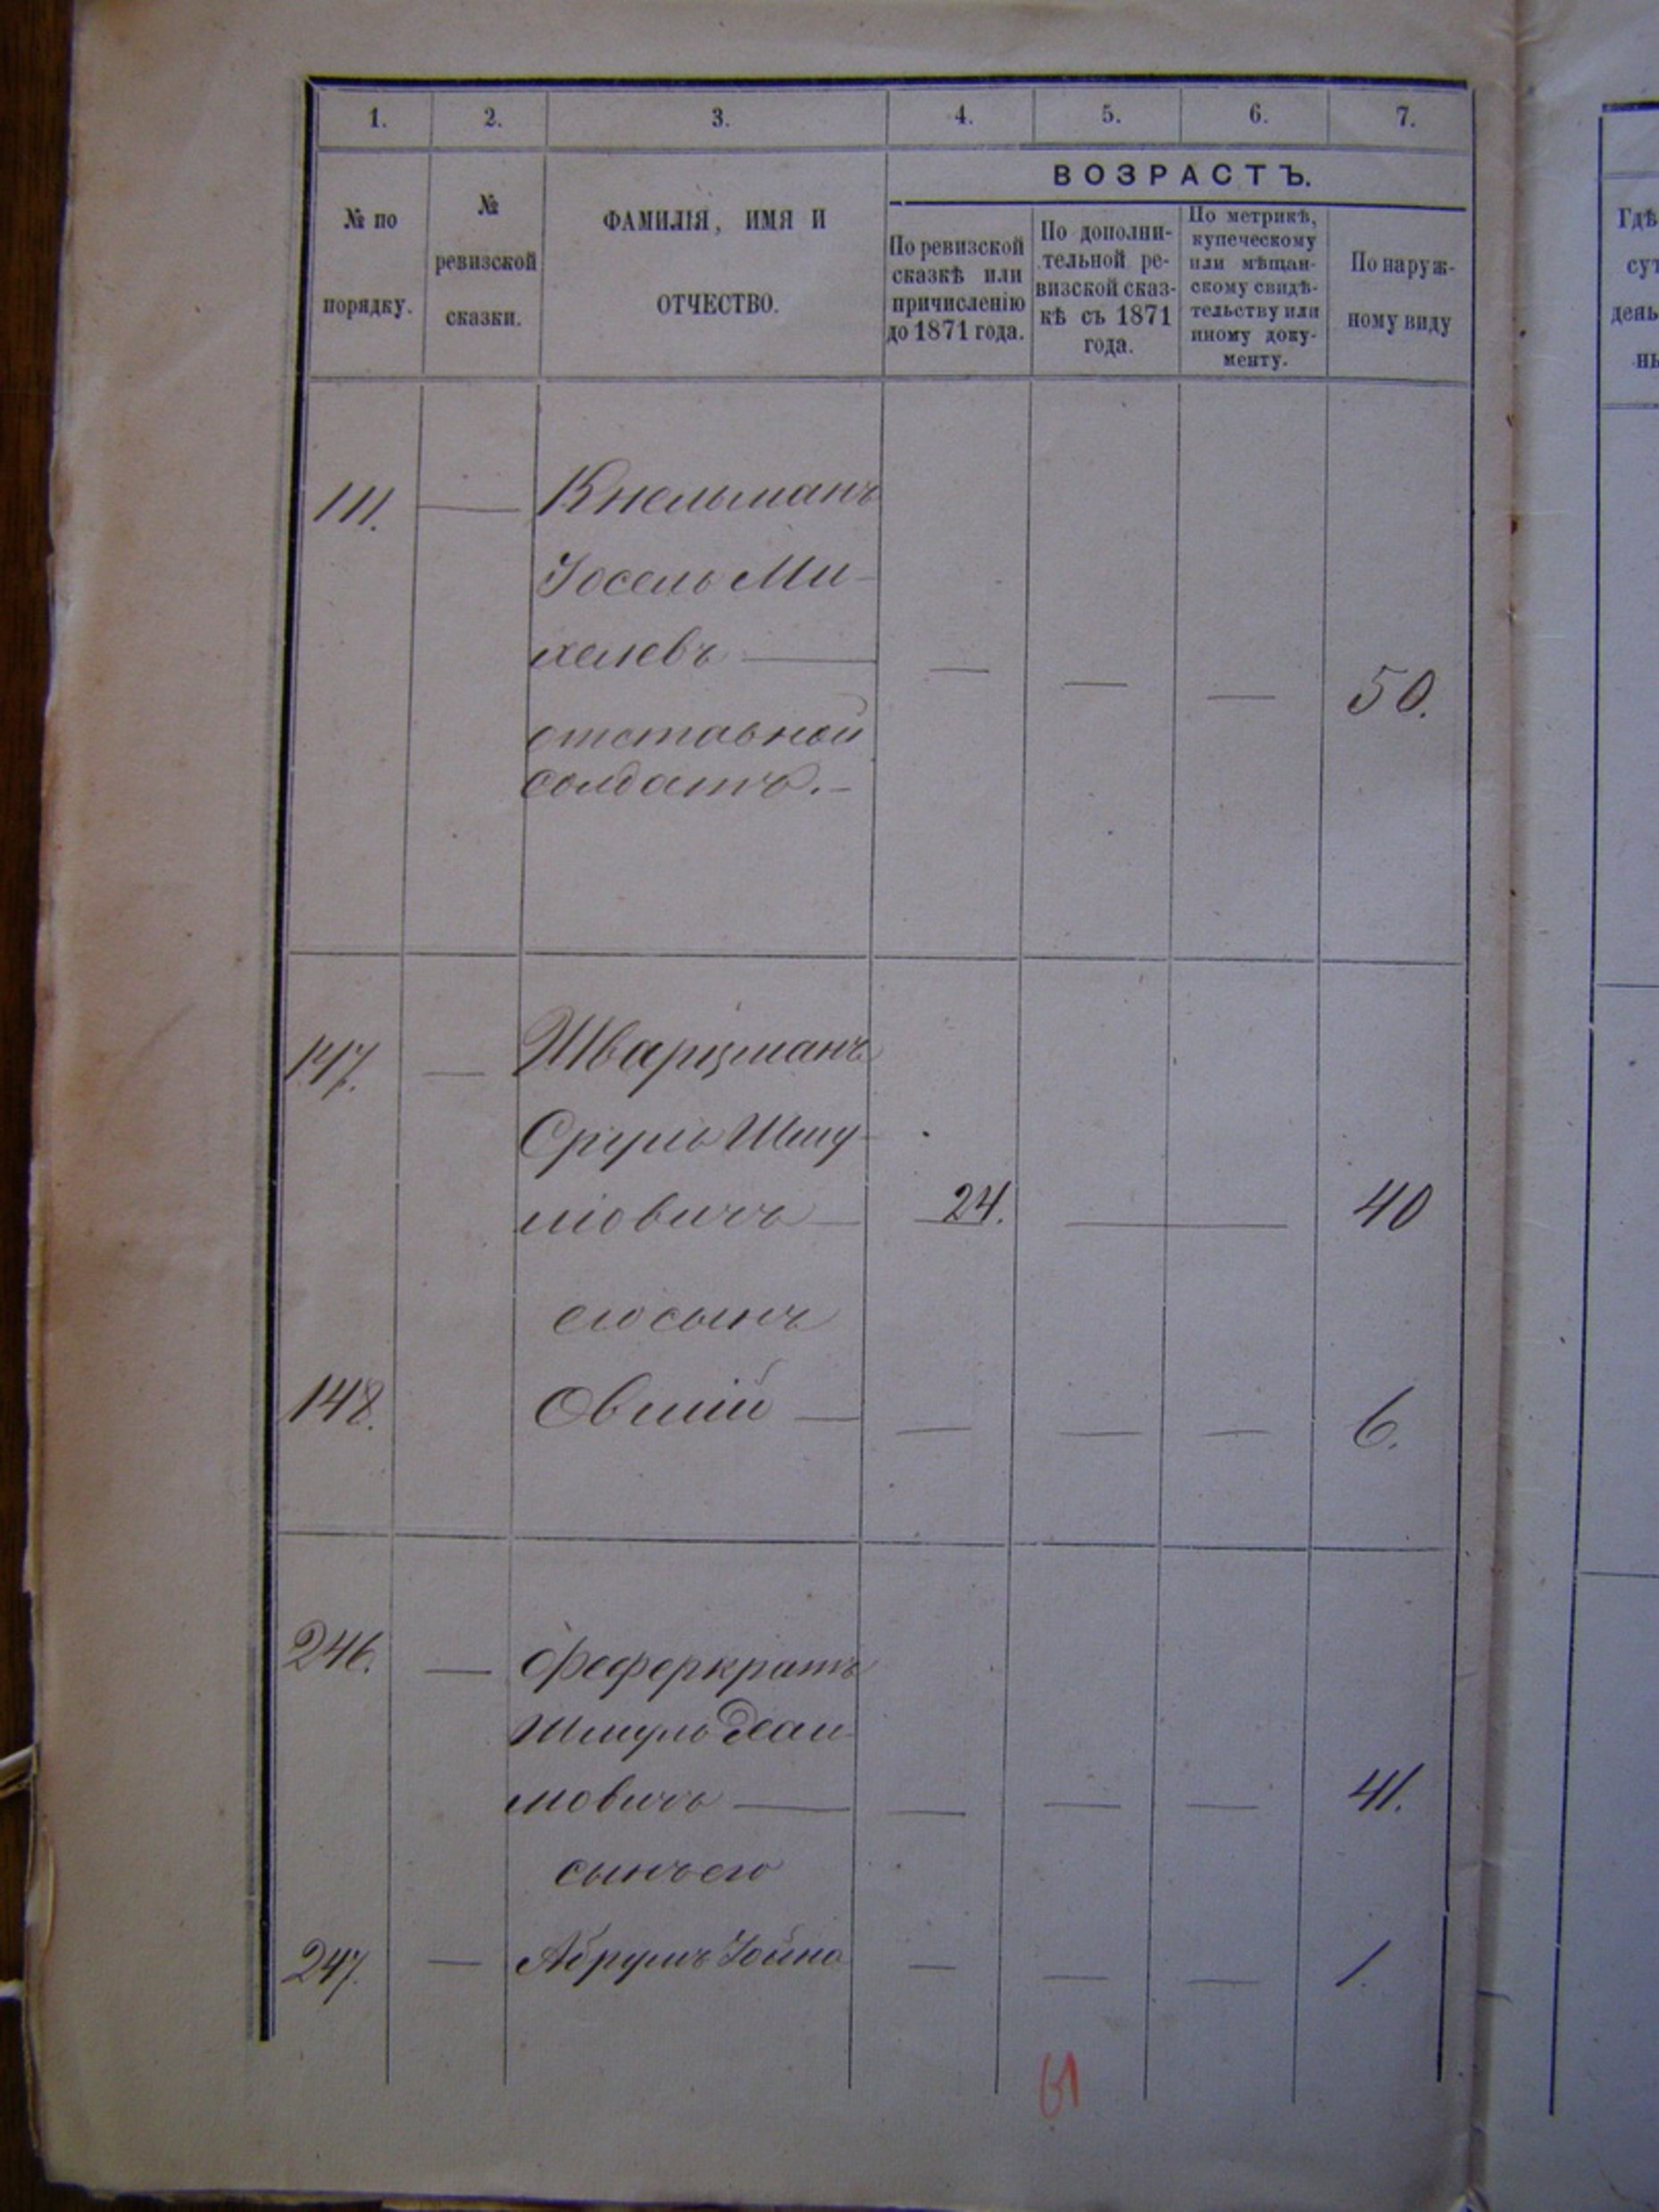 1. 2. 3. 4. 5. 6. 7.
№ по порядку.
№ ревизской сказки.
ФАМИЛІЯ, ИМЯ И
ОТЧЕСТВО.
ВОЗРАСТЪ.
По ревизской
сказкѣ или
причисленію
до 1871 года.
По дополни-
тельной ре-
визской сказ-
кѣ съ 1871
года.
По метрикѣ,
купеческому
или мѣщан-
скому свидѣ-
тельству или
иному доку-
менту.
По наруж-
ному виду
Гдѣ
сут
день
111. — Кнельманъ
Іосель Ми-
хелевъ —
— — — 50.
отставной
солдатъ. —
147. — Шварцманъ
Сруль Шму-
líовичъ — 24. — 40
его сынъ
148. Овшій — — — — 6.
246. — Феферкратъ
Шмуль Хаи-
мовичъ — — — — 41.
сынъ его
247. — Абрумъ Іойно — — — 1.
61